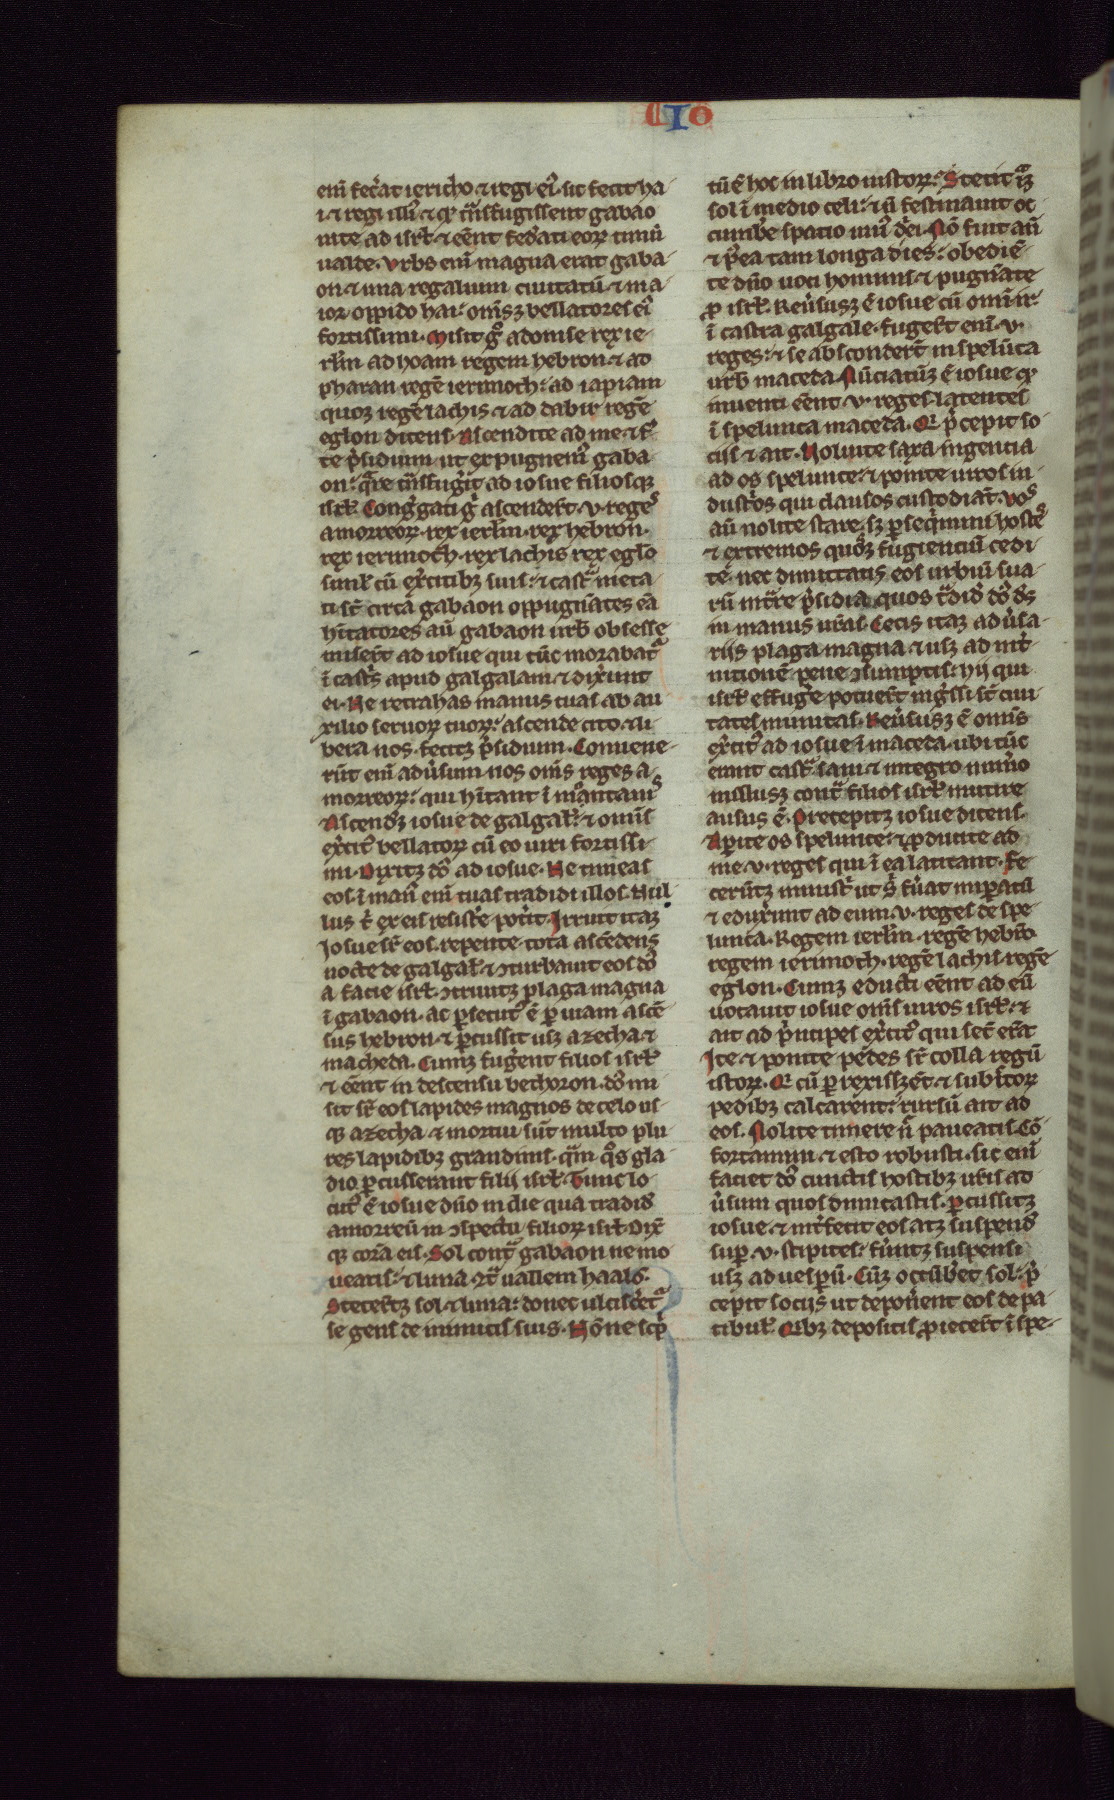 IO
enī fec̄at iericho ⁊ regi ei᷒. sic fecit ha-
i ⁊ regi illi᷒ ⁊ qꝫ t͛nsfugissent gabao
nite ad isrł ⁊ eēnt fed̾ati eoꝝ timū
ualde. Vrbs enī magna erat gaba-
on ⁊ una regalium ciuitatū ⁊ ma-
ior oppido hai: om̄sꝫ bellatores ei᷒
fortissimi. Misit gͦ adonise rex ie-
rłm ad hoam regem hebron ⁊ ad
pharan regē ierimoth: ad iapiam
quoꝫ regē lachis ⁊ ad dabir regē
eglon dicens. Ascendite ad me ⁊ f̾-
te p̾sidium ut expugnem᷒ gaba-
on: q̄re t͛nsfug̾it ad iosue filiosqꝫ
isrł. Cong̾gati g̾ ascender̄t .v. reges
amorreoꝝ. rex ierłm. rex hebron.
rex ierimoth. rex lachis rex eglō
simł cū ex̾citibꝫ suis: ⁊ cast͛ meta-
ti st̄ circa gabaon oppugnātes eā
hītatores aū gabaon urb̾ obsesse
miser̄t ad iosue qui tūc morabat᷑
ī cast̾s apud galgalam ⁊ dix̾unt
ei. Ne retrahas manus tuas ab au-
xilio seruoꝝ tuoꝝ: ascende cito ⁊ li-
bera nos. fercꝫ p̾sidium. Conuene-
rūt enī adu̾sum nos om̄s reges a-
morreoꝝ: qui hītant ī mōtanis
Ascendꝫ iosue de galgał: ⁊ omīs
ex̾cit᷒ bellatoꝝ cū eo uiri fortissi-
mi. Dixitꝫ dō ad iosue. Ne timeas
eos. ī man᷒ enī tuas tradidi illos. Nul-
lus t̾ ex eis resist̾e pot̾it. Irruit itaꝫ
Iosue sr̄ eos. repente tota ascēdens
nocte de galgał: ⁊ ɔturbauit eos dō
a facie isrł. ɔtriuitꝫ plaga magna
ī gabaon. ac ꝑsecut᷒ ē ꝑ uiam ascē-
sus hebron. ⁊ ꝑcussit usꝫ azecha ⁊
macheda. Cumꝫ fug̾ent filios isrł
⁊ eēnt in descensu bethoron. dō mi-
sit sr̄ eos lapides magnos de celo us-
qꝫ azecha ⁊ mortui sūt multo plu-
res lapidibꝫ grandinis. q͛m q̊s gla-
dio ꝑcusserant filii isrł. Tunc lo-
cut᷒ ē iosue dn̄o in die qua tradid̾
amorreū in ɔspectu filioꝝ isrł. Dix̄
qꝫ corā eis. Sol cont͛ gabaon ne mo-
ueatis: ⁊ luna ɔt͛ uallem haalō.
Steter̄tꝫ sol ⁊ luna: donec ulcisc̾et᷑
se gens de inimicis suis. Nōne sc̾p-
tū ē hoc in libro iustoꝝ: Stetit itaꝫ
sol ī medio celi: ⁊ ñ festinauit oc-
cumb̾e spatio uni᷒ diei. Nō fuit añ
⁊ p̾ea tam longa dies: obediē-
te dn̄o uoci hominis ⁊ pugnāte
ꝓ isrł. Reu̾susꝫ ē iosue cū omī ir̄:
ī castra galgale. fuger̄t enī .v.
reges: ⁊ se absconder̄t in spelūca
urb̾ maceda. Nūciatūꝫ ē iosue qꝫ
inuenti eēnt .v. reges latentes
ī spelunca maceda. Qi p̾cepit so-
ciis ⁊ ait. Noluite saxa ingentia
ad os spelunce: ⁊ ponite uiros in-
dust̾os qui clausos custodiāt. vos
aū nolite stare. sꝫ ꝑseq̾mini hostes
⁊ extremos quosꝫ fugientiū cedi-
te. nec dimittatis eos urbiū sua-
rū int̾re p̾sidia. quos t͛did̾ dō ds̄
in manus ur̄as. Cesis itaꝫ adu̾sa-
riis plaga magna ⁊ usꝫ ad int̾-
nitionē pene ɔsumptis: hij qui
isrł effug̾e potuer̄t ing̾ssi sr̄ ciui-
tates munitas. Reu̾susꝫ ē omīs
ex̾cit᷒ ad iosue ī maceda. ubi tūc
erant cast͛. sani ⁊ integro num̾o
nullusꝫ cont͛ filios isrł mutire
ausus ē. Precepitꝫ iosue dicens.
Aꝑite os spelunce: ⁊ ꝓducite ad
me .v. reges qui ī ea latitant. Fe-
cerūtꝫ ministri ut s̄ fu̾at inꝑatū
⁊ edux̾unt ad eum .v. reges de spe-
lunca. Regem ierłm. regē hebrō.
regem ierimoth. regē lachis. regē
eglon. Cumꝫ educti eēnt ad eū
uocauit iosue om̄s uiros isrł: ⁊
ait ad p̾ncipes ex̾cit᷒ qui sec̄ er̄at
Ite ⁊ ponite pedes sr̄ colla regū
istoꝝ. Qi cū ꝑrexissꝫēt ⁊ subi̾toꝝ
pedibꝫ calcarent: rursū ait ad
eos. Nolite timere n̄ paueatis. Cō-
fortamini ⁊ esto robusti. sic enī
faciet dō cunctis hostibꝫ ur̄is ad-
u̾sum quos dimicastis. ꝑcussitꝫ
iosue. ⁊ int̾fecit eos atꝫ suspend̾
suꝑ .v. stipites: fu̾intꝫ suspensi
usꝫ ad uesꝑū. Cūꝫ occūb̾et sol: p̾-
cepit socijs ut depon̾ent eos de pa-
tibuł. Qibꝫ depositis ꝓiecer̄t ī spe-